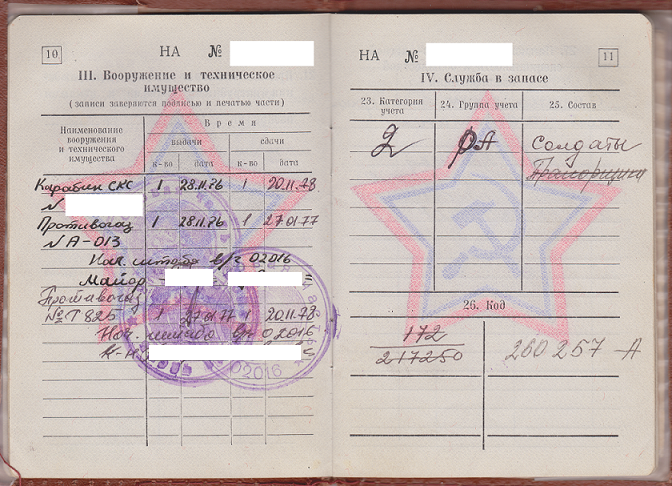 10
НА №
III. Вооружение и техническое
имущество
(записи заверяются подписью и печатью части)
Наименование
вооружения
и технического
имущества
Время
выдачи
сдачи
к-во
дата
к-во
дата
Карабин СКС 1 28.11.76 1 20.11.78
N
Противогаз 1 28.11.76 1 27.01.77
N А-013
Нач. штаба в/ч 02016
Майор
Противогаз
№ Т 825 1 27.01.77 1 20.11.78
Нач. штаба 02016
02016
НА №
11
IV. Служба в запасе
23. Категория
учета
24. Группа учета
25. Состав
2
РА
Солдаты
Прапорщики
26. Код
172
217250
260257-А